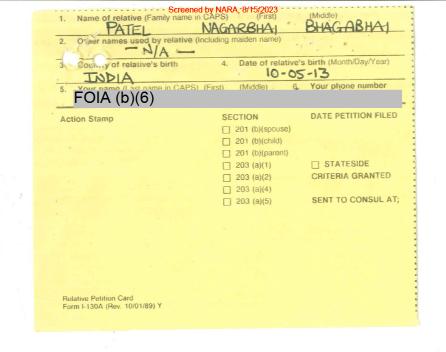 Screened by NARA, 8/15/2023
1. Name of relative (Family name in CAPS) (First) (Middle)
PATEL NAGARBHAI BHAGABHAI
2. Other names used by relative (Including maiden name)
— N/A —
3. Country of relative's birth 4. Date of relative's birth (Month/Day/Year)
INDIA 10-05-13
5. Your name (Last name in CAPS) (First) (Middle) 6. Your phone number
FOIA (b)(6)
Action Stamp SECTION DATE PETITION FILED
201 (b)(spouse)
201 (b)(child)
201 (b)(parent)
203 (a)(1) STATESIDE
203 (a)(2) CRITERIA GRANTED
203 (a)(4)
203 (a)(5) SENT TO CONSUL AT;
Relative Petition Card
Form I-130A (Rev. 10/01/89) Y